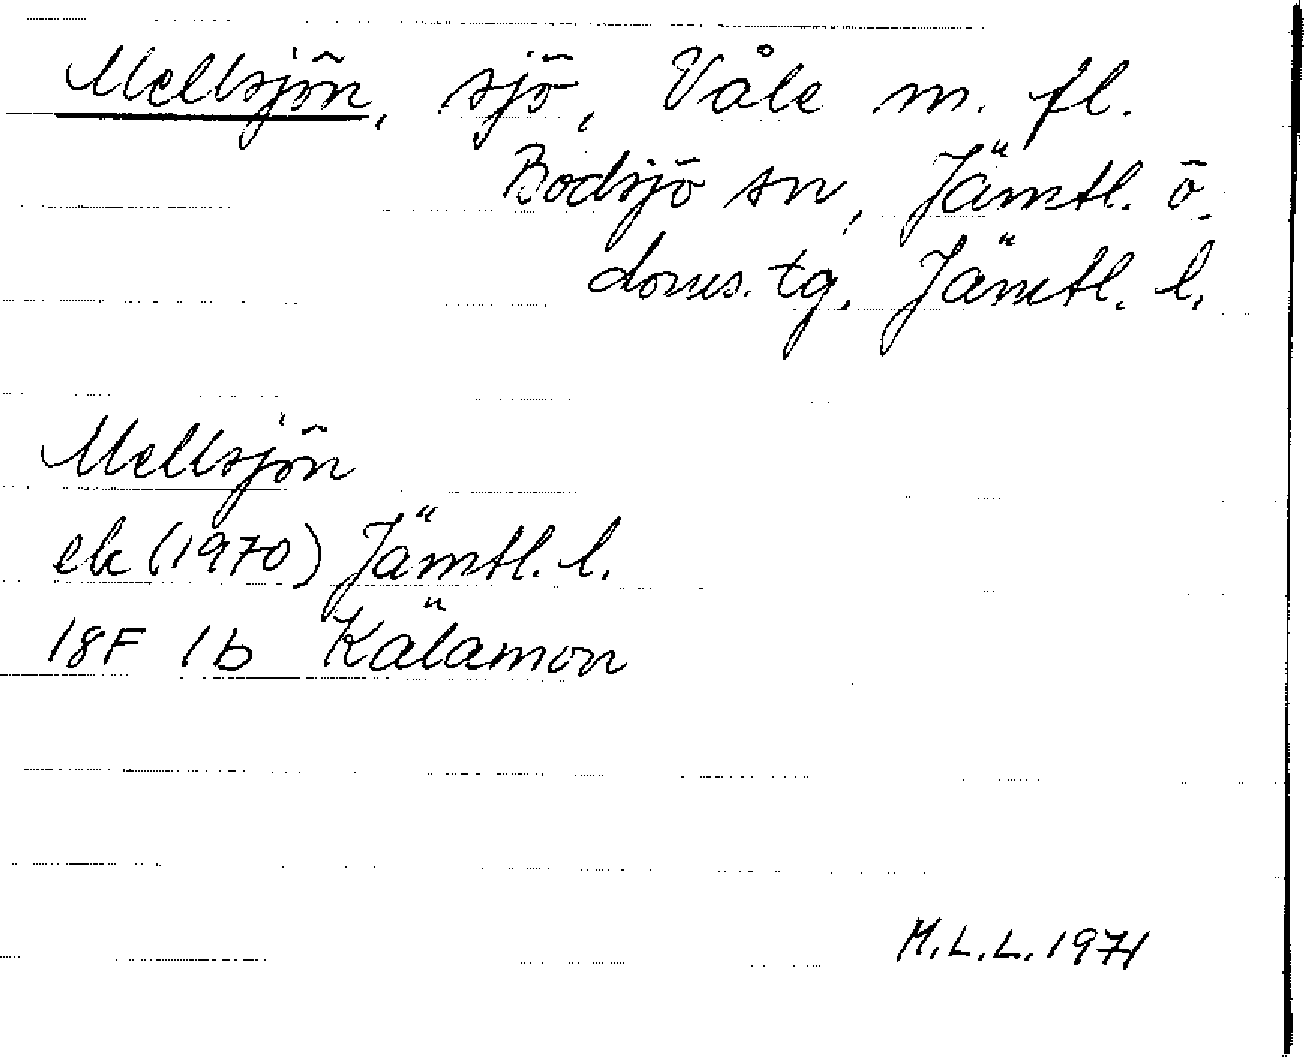 Mellsjön, sjö, Våle m. fl.
Bodsjö sn, Jämtl. ö.
doms. tg. Jämtl. l.
Mellsjön
ek (1970) Jämtl. l.
18F 1b Kälamon
M.L.L. 1971